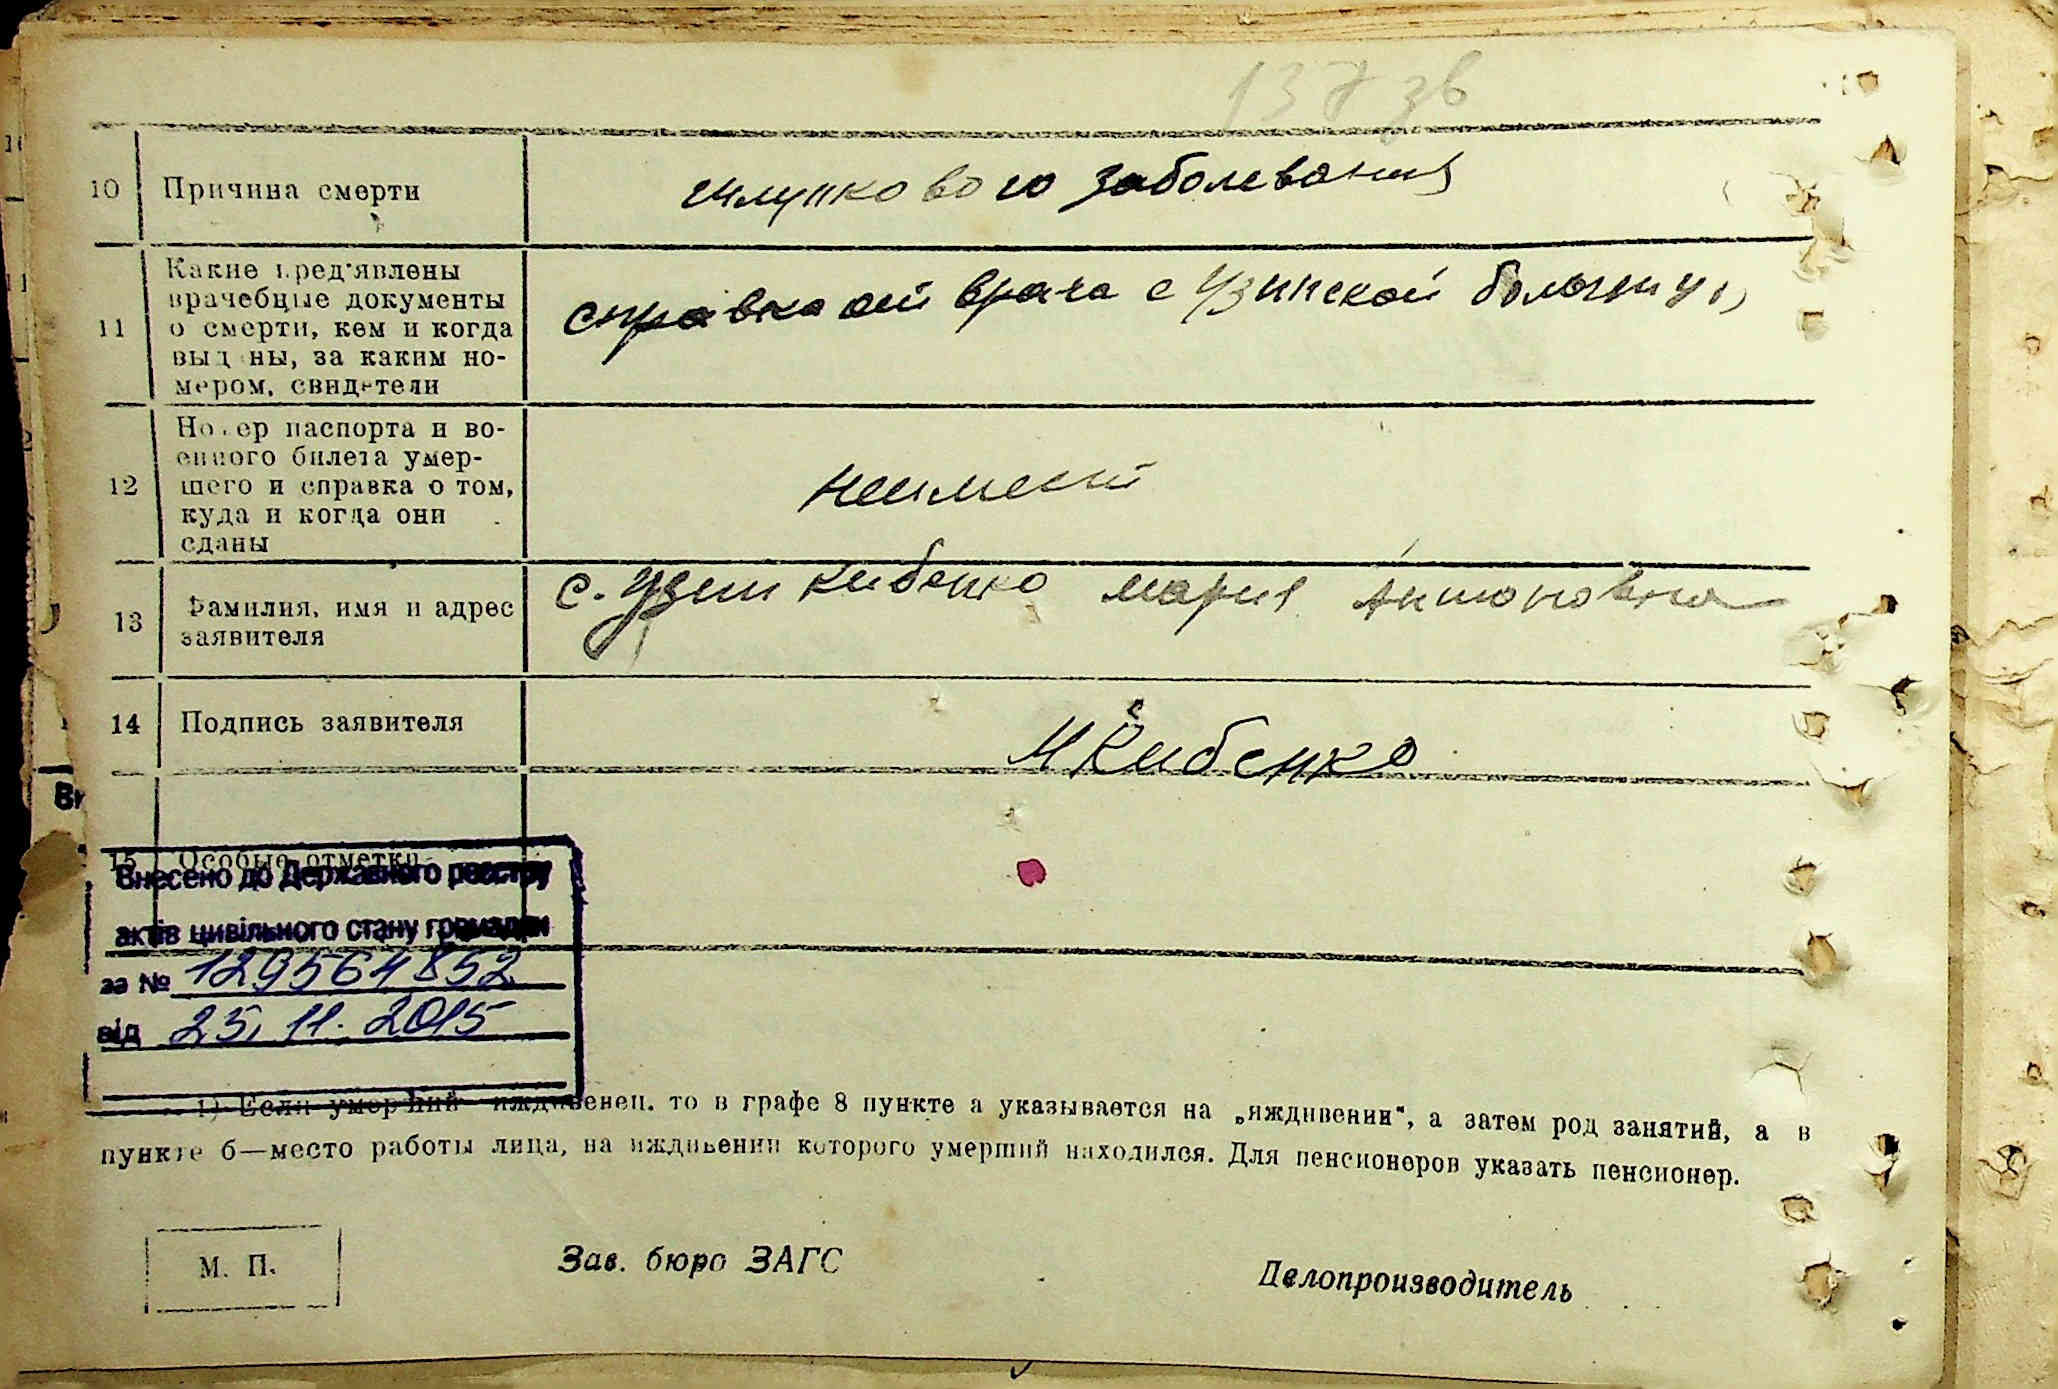 137 зв
10 Причина смерти
жлуткового заболевания
11 Какие пред'явлены
врачебные документы
о смерти, кем и когда
выданы, за каким но-
мером, свидетели
справка от врача с Узинской больницы
12 Номер паспорта и во-
енного билета умер-
шего и справка о том,
куда и когда они
сданы
неимеит
13 Фамилия, имя и адрес
заявителя
с. Узин Кибенко мария Антоновна
14 Подпись заявителя
М Кибенко
15 Особые отметки
Внесено до Державного реєстру
актів цивільного стану громадян
за № 129564852
від 25.11.2015
1) Если умерший иждивенец. то в графе 8 пункте а указывается на „иждивении“, а затем род занятий, а в
пункте б—место работы лица, на иждивении которого умерший находился. Для пенсионеров указать пенсионер.
М. П.
Зав. бюро ЗАГС
Делопроизводитель